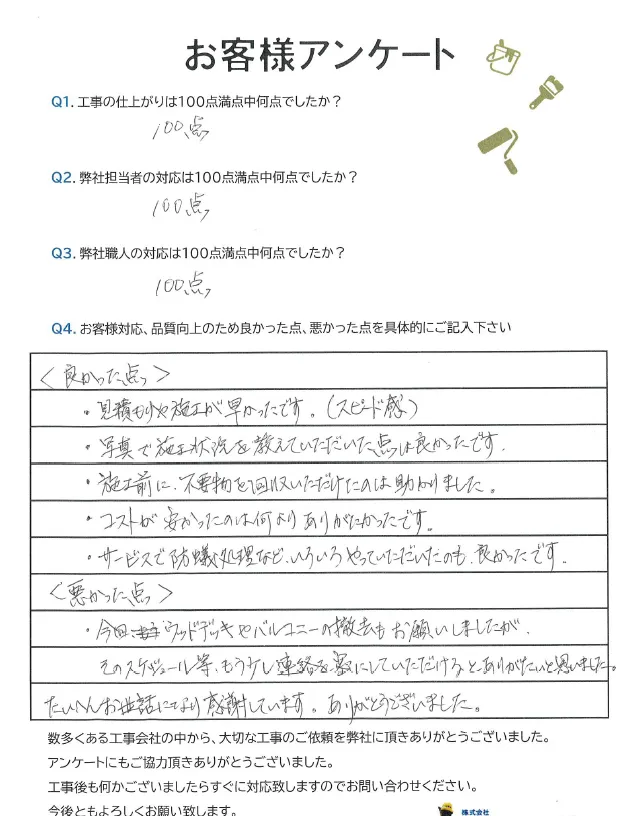 お客様アンケート
Q1. 工事の仕上がりは100点満点中何点でしたか？
100点
Q2. 弊社担当者の対応は100点満点中何点でしたか？
100点
Q3. 弊社職人の対応は100点満点中何点でしたか？
100点
Q4. お客様対応、品質向上のため良かった点、悪かった点を具体的にご記入下さい
＜良かった点＞
・見積もりや施工が早かったです。（スピード感）
・写真で施工状況を教えていただいた点は良かったです.
・施工前に、不要物を回収いただけたのは助かりました。
・コストが安かったのは何よりありがたかったです。
・サービスで防蟻処理など、いろいろやっていただいたのも、良かったです.
＜悪かった点＞
・今回ウッドデッキやバルコニーの撤去もお願いしましたが、
そのスケジュール等、もう少し連絡を密にしていただけるとありがたいと思いました。
たいへんお世話になり感謝しています。ありがとうございました。
数多くある工事会社の中から、大切な工事のご依頼を弊社に頂きありがとうございました。
アンケートにもご協力頂きありがとうございました。
工事後も何かございましたらすぐに対応致しますのでお問い合わせください。
今後ともよろしくお願い致します。
株式会社